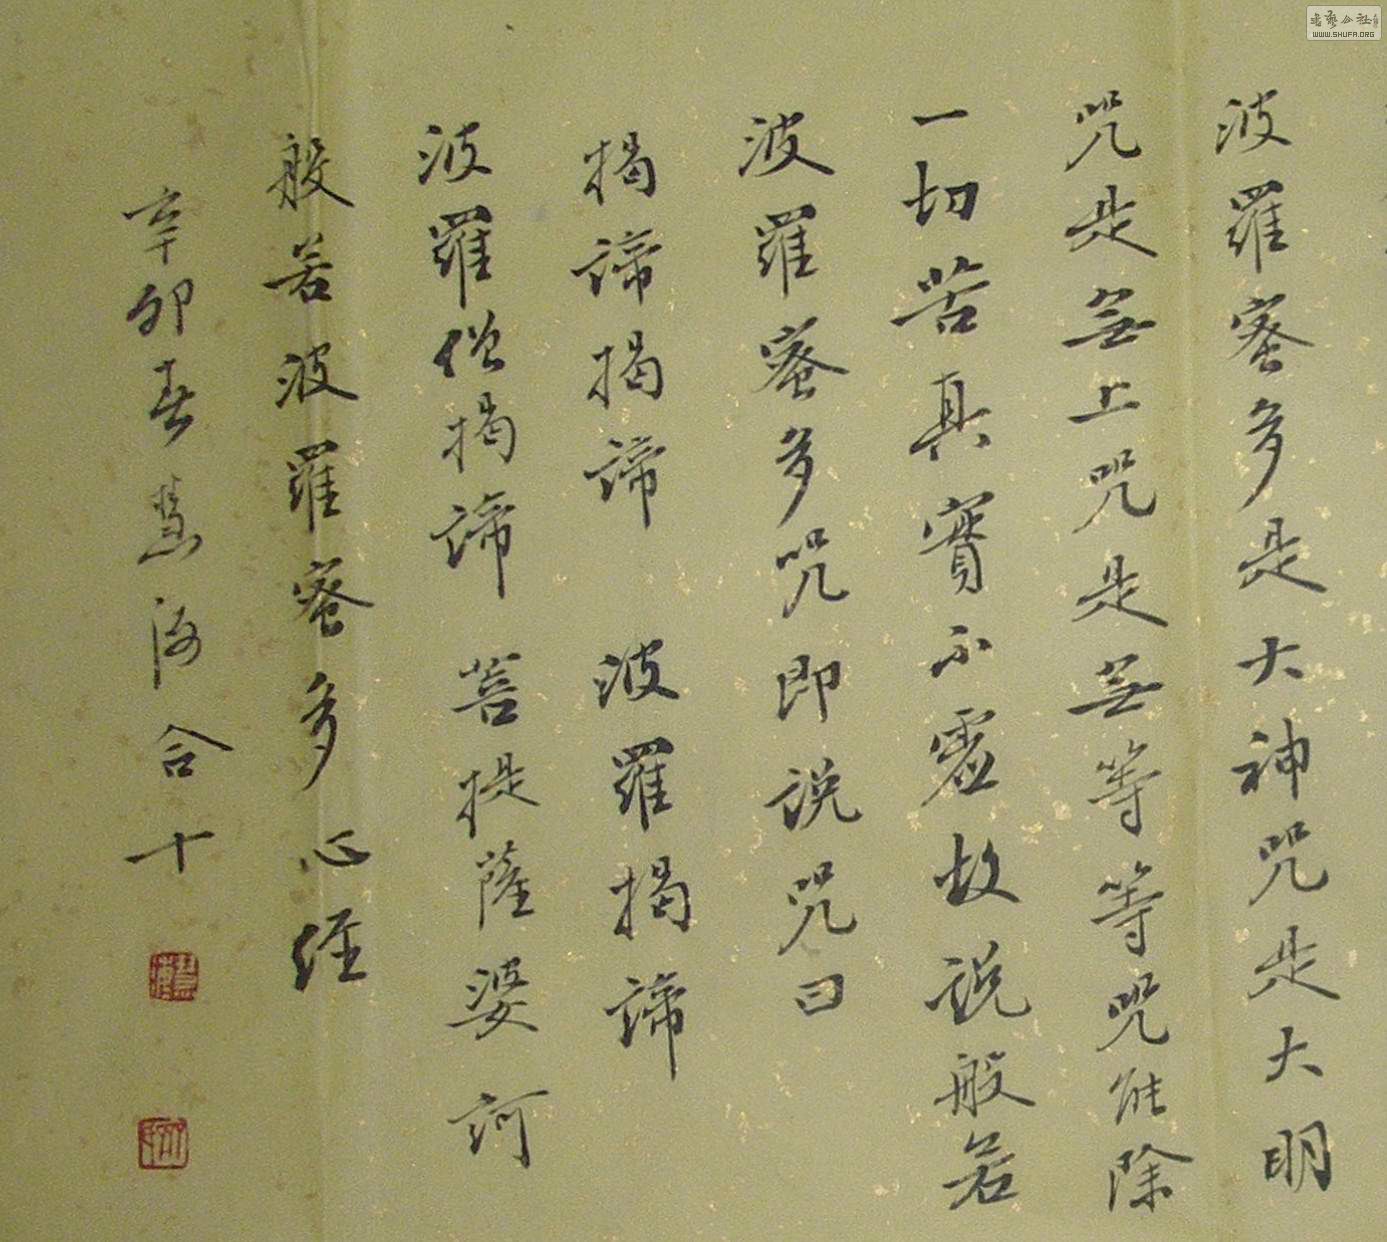 波羅蜜多是大神咒是大明
咒是無上咒是無等等咒能除
一切苦真實不虛故說般若
波羅蜜多咒即說咒曰
揭諦揭諦 波羅揭諦
波羅僧揭諦 菩提薩婆訶
般若波羅蜜多心經
辛卯春慧海合十
WWW.SHUFA.ORG